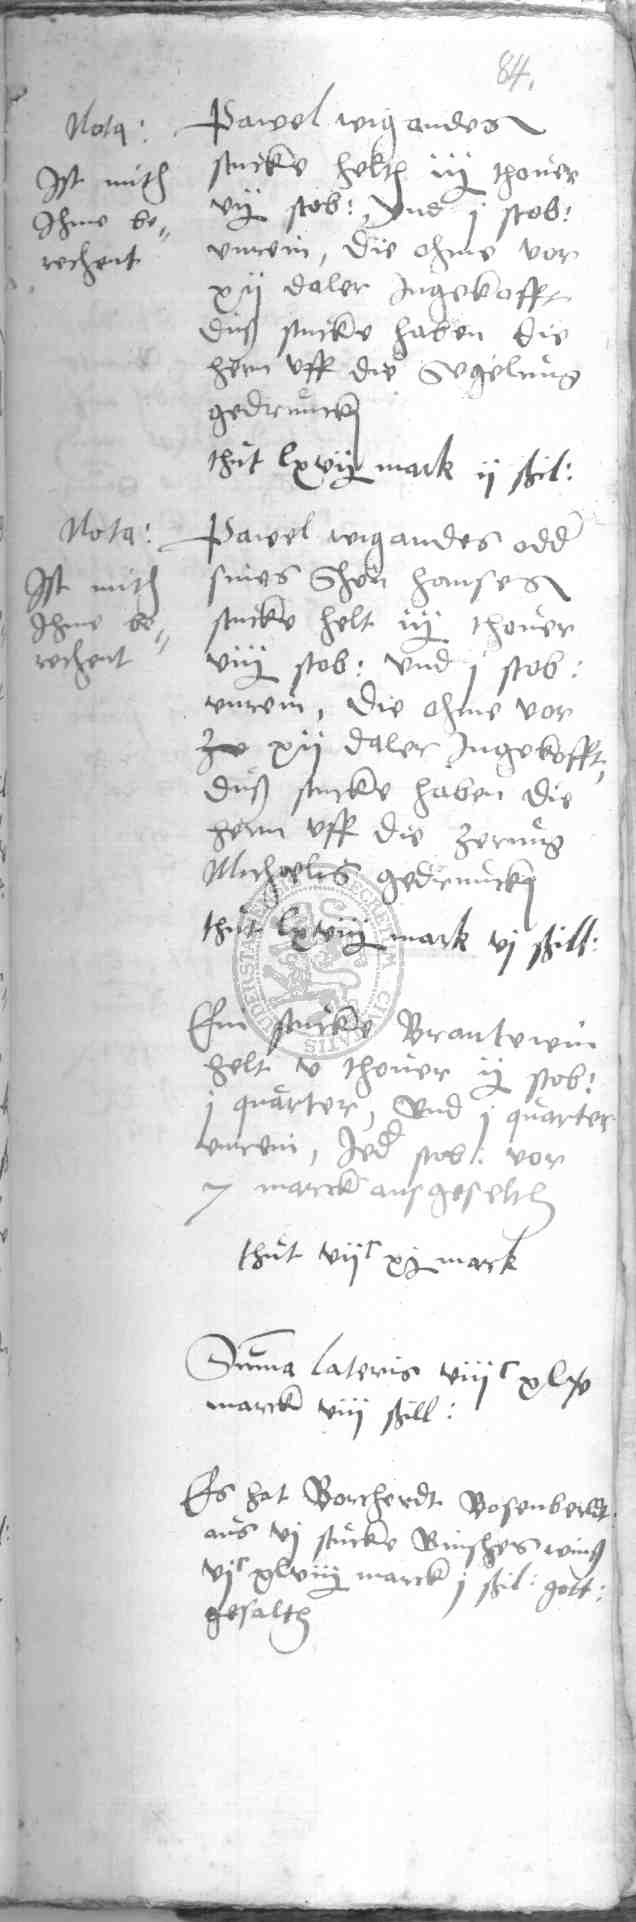 84.
Nota:
Ist mith
Ihme be„
rechent
Pawel wigandes
stucke helth iij thover
vij stob: vnd j stob:
vnrein, die ohme vor
xij daler Ingekofft
duß stucke haben die
hern vff die
gedrunck
thut lxvij mark ij ßil:
Nota:
Ist mith
Ihme be„
rechent
Pawel wigandes odd
sines Shen hanses
stucke helt iij thover
viij stob: vnd j stob:
vnrein, die ohme vor
xij daler Ingekofft,
duß stucke haben die
hern vff die zerung
Michaelis gedrunck
thut lxviij mark vj ßill:
Ein stucke Brantewin
helt v thover ij stob:
j quarter, vnd j quarter
vnrein, Jed stob: vor
marck ausgeselth
thut viic xj mark
Summa lateris viiic xlv
marck viij ßill:
Es hat Borcherdt Bosenberdt
aus vj stucke Rinsches wins
vjc xlviij marck j ßil: gott:
gesalth
SECRETUM CIVITATIS